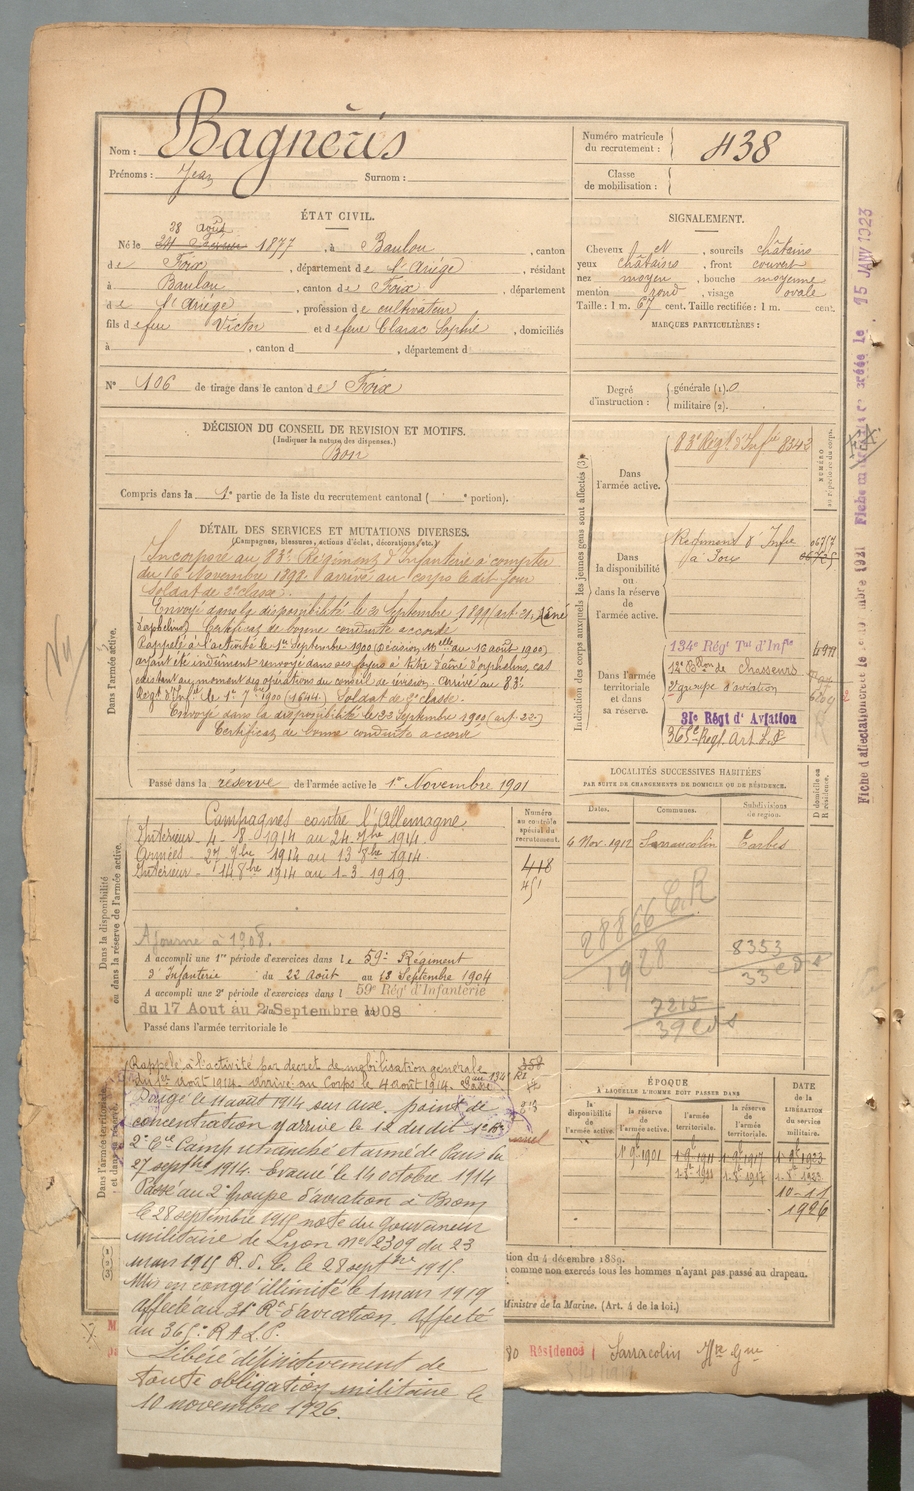 Nom : Bagnéris
Prénoms : Jean Surnom :
Numéro matricule du recrutement : 438
Classe de mobilisation :
ÉTAT CIVIL.
28 Août
Né le 1877, à Baulou, canton
de Foix, département de l'Ariège, résidant
à Baulou, canton de Foix, département
de l'Ariège, profession de cultivateur
fils de feu Victor et de feue Clarac Sophie, domiciliés
à , canton d , département d
N° 106 de tirage dans le canton de Foix
SIGNALEMENT.
Cheveux N, sourcils châtains
yeux châtains, front couvert
nez moyen, bouche moyenne
menton rond, visage ovale
Taille : 1 m. 67 cent. Taille rectifiée : 1 m. cent.
MARQUES PARTICULIÈRES :
Degré d'instruction : générale (1). 0
militaire (2).
DÉCISION DU CONSEIL DE REVISION ET MOTIFS.
(Indiquer la nature des dispenses.)
Bon
Compris dans la 1e partie de la liste du recrutement cantonal ( e portion).
DÉTAIL DES SERVICES ET MUTATIONS DIVERSES.
(Campagnes, blessures, actions d'éclat, décorations, etc.)
Dans l'armée active.
Incorporé au 83e Régiment d'Infanterie à compter
du 16 Novembre 1898 arrivé au corps le dit jour
soldat de 2e classe.
Envoyé dans la disponibilité le 20 Septembre 1899 (art. 21, Aîné
d'orphelins). Certificat de bonne conduite accordé
Rappelé à l'activité le 1er Septembre 1900 (Décision Mlle du 16 août 1900)
ayant été indûment renvoyé dans ses foyers à titre d'aîné d'orphelins, cas
existant au moment des opérations du conseil de révision. Arrivé au 83e
Régt d'Infie le 1er 7bre 1900 (1644) Soldat de 2e classe.
Envoyé dans la disponibilité le 22 Septembre 1900 (art. 22)
Certificat de bonne conduite accordé
Passé dans la réserve de l'armée active le 1er Novembre 1901
Indication des corps auxquels les jeunes gens sont affectés (3).
Dans l'armée active.
83e Régt d'Infie 8342
NUMÉRO au répertoire du corps.
Dans la disponibilité ou dans la réserve de l'armée active.
Régiment d'Infie
de Foix
Dans l'armée territoriale et dans sa réserve.
134e Rég Tal d'Infie
12e Bon de Chasseurs
2e groupe d'aviation
31e Régt d'Aviation
365e Regt Art. L. P.
Fiche d'affectation 15 JANV 1923
LOCALITÉS SUCCESSIVES HABITÉES
PAR SUITE DE CHANGEMENTS DE DOMICILE OU DE RÉSIDENCE.
Dates. Communes. Subdivisions de région. D domicile ou R résidence.
6 Nov. 1912 Sarrancolin Tarbes
28866 C.R
1928
8353
33
7215
39
Dans la disponibilité ou dans la réserve de l'armée active.
Campagnes contre l'Allemagne.
Intérieur 4-8-1914 au 24 7bre 1914.
Armées 27 7bre 1914 au 13 8bre 1914.
Intérieur 14 8bre 1914 au 1-3 1919.
Numéro au contrôle spécial du recrutement.
418
451
Ajourné à 1908.
A accompli une 1re période d'exercices dans le 59e Régiment
d'Infanterie du 22 Août au 18 Septembre 1904
A accompli une 2e période d'exercices dans l 59e Rég d'Infanterie
du 17 Aout au Septembre 1908
Passé dans l'armée territoriale le
Rappelé à l'activité par décret de mobilisation générale
du 1er août 1914. Arrivé au Corps le 4 août 1914. Passé au 134
Dirigé le 11 août 1914 sur point de
concentration y arrivé le 12 du dit
2e Cie Camp retranché et armé de Paris du
27 septbre 1914. Évacué le 14 octobre 1914
Passé au 2e groupe d'aviation à Bron
le 28 septembre 1915 note du Gouverneur
militaire de Lyon No 2309 du 23
mars 1915 R. d. C. le 28 septbre 1915.
Mis en congé illimité le 1 mars 1919
affecté au 31e Rt d'aviation. Affecté
au 365e R A L P.
Libéré définitivement de
toute obligation militaire le
10 novembre 1926.
ÉPOQUE
À LAQUELLE L'HOMME DOIT PASSER DANS
la disponibilité de l'armée active. la réserve de l'armée active. l'armée territoriale. la réserve de l'armée territoriale.
DATE DE LA LIBÉRATION DU SERVICE militaire.
1er 9bre 1901 1 9bre 1911 1 9bre 1917 1 9bre 1923
10-11
1926
tion du 4 décembre 1889.
comme non exercés tous les hommes n'ayant pas passé au drapeau.
Ministre de la Marine. (Art. 4 de la loi.)
Résidence Sarracolin Hte Gne